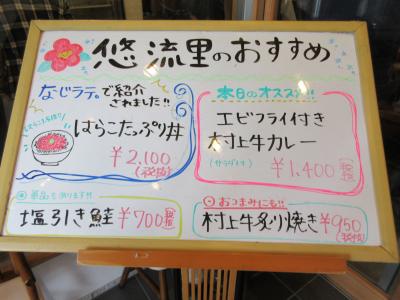 悠流里のおすすめ
なじラテ。で紹介
されました!!
はらこたっぷり丼
¥2,100
(税抜)
単品も有ります!!
塩引き鮭 ¥700 税抜
本日のオススメ!!
エビフライ付き
村上牛カレー
(サラダ付き)
¥1,400 税抜
おつまみにも!!
村上牛炙り焼き ¥950
(税抜)